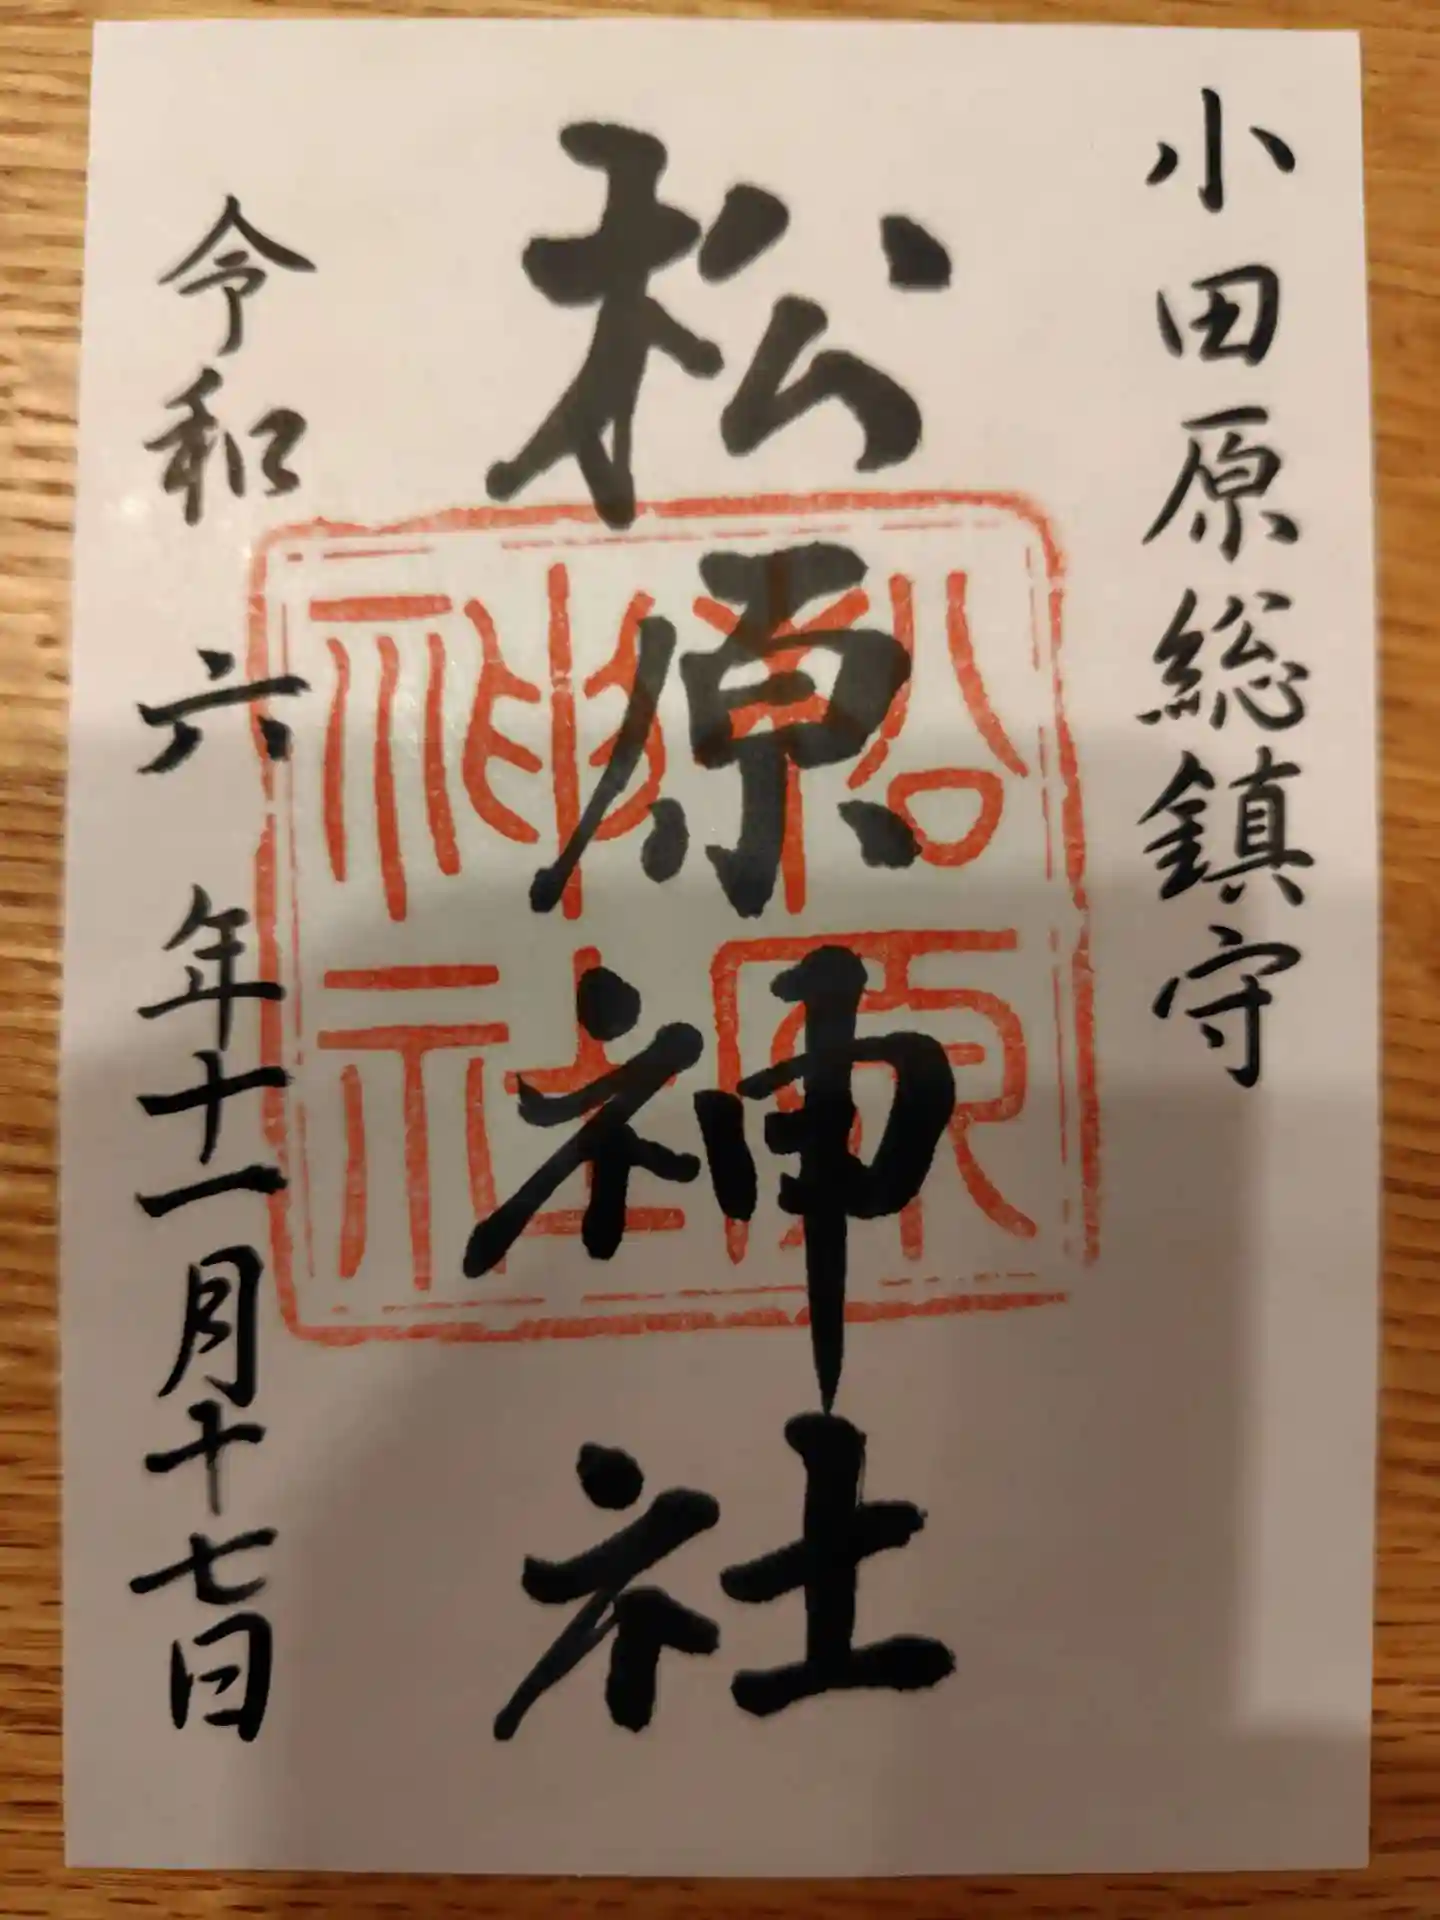 小田原総鎮守
松原神社
松原神社
令和六年十一月十七日